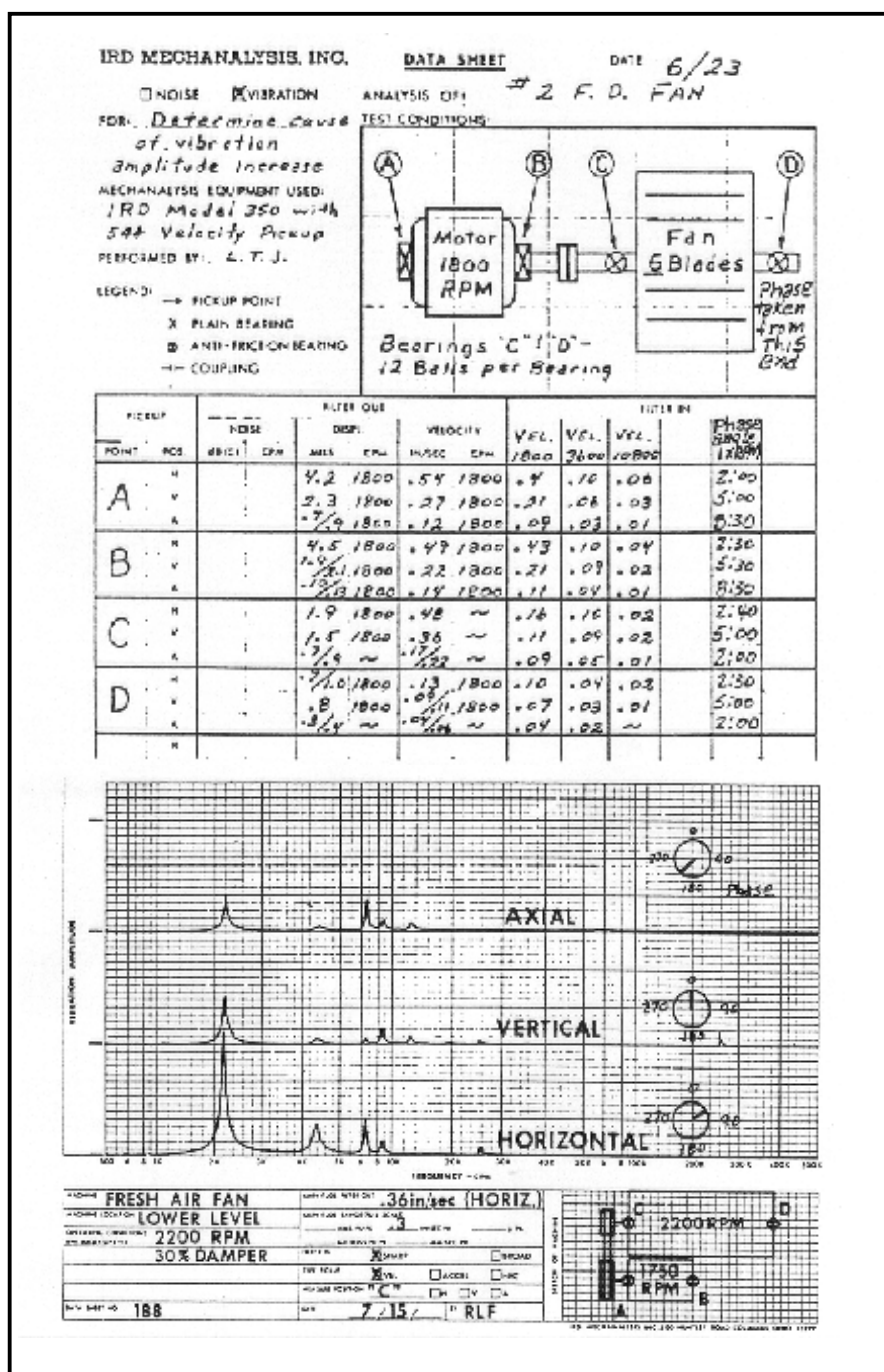 IRD MECHANALYSIS, INC. DATA SHEET DATE 6/23
NOISE VIBRATION ANALYSIS OF: #2 F. D. FAN
FOR: Determine cause TEST CONDITIONS:
of vibration
amplitude increase
MECHANALYSIS EQUIPMENT USED:
IRD Model 350 with
544 Velocity Pickup
PERFORMED BY: L. T. J.
LEGEND:
PICKUP POINT
X PLAIN BEARING
ANTI-FRICTION BEARING
COUPLING
A B C D
Motor
1800
RPM
Fan
6 Blades
Phase
taken
from
This
End
Bearings "C" & "D" -
12 Balls per Bearing
PICKUP FILTER OUT FILTER IN
NOISE DISPL. VELOCITY VEL. VEL. VEL. Phase
POINT POS. CPM MILS CPM IN/SEC CPM 1800 3600 10800 angle
A
H 4.2 1800 .54 1800 .4 .10 .06 2:00
V 2.3 1800 .27 1800 .21 .06 .03 5:00
A .7/.9 1800 .12 1800 .09 .03 .01 8:30
B
H 4.5 1800 .49 1800 .43 .10 .04 2:30
V 1800 .22 1800 .21 .09 .02 5:30
A 1800 .14 1800 .11 .04 .01 8:30
C
H 1.9 1800 .48 ~ .16 .10 .02 2:40
V 1.5 1800 .36 ~ .11 .09 .02 5:00
A ~ .17/.22 ~ .09 .05 .01 2:00
D
H 1800 .13 1800 .10 .04 .02 2:30
V .8 1800 1800 .07 .03 .01 5:00
A .3/.4 ~ .04/.06 ~ .04 .02 ~ 2:00
H
VIBRATION AMPLITUDE
AXIAL
0 270 90 180 Phase
VERTICAL
0 270 90
HORIZONTAL
0 270 90 180
FREQUENCY - CPM
MACHINE FRESH AIR FAN
MACHINE LOCATION LOWER LEVEL
2200 RPM
30% DAMPER
DATA SHEET NO. 188
.36 in/sec (HORIZ.)
.3
SHARP BROAD
VEL. ACCEL
"C" H V A
7/15/ RLF
C D
2200 RPM
1750
RPM
A B